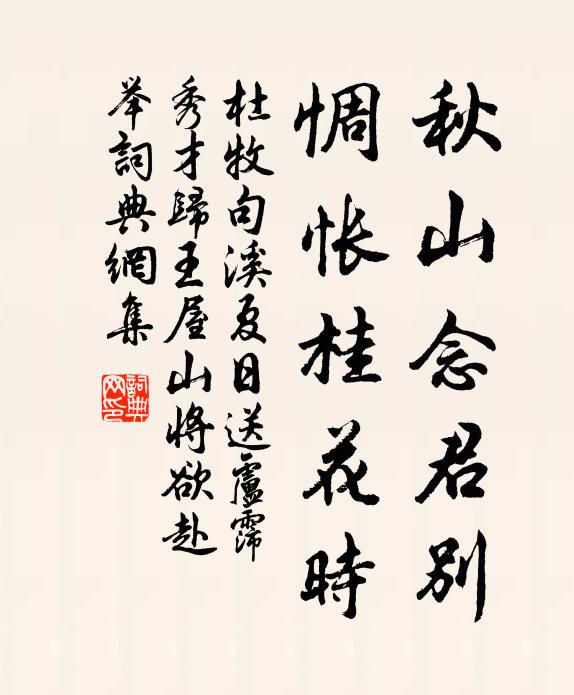 秋山念君别
惆怅桂花時
杜牧句溪夏日送盧霈
秀才歸王屋山將欲赴
举詞典網集
詞典网印